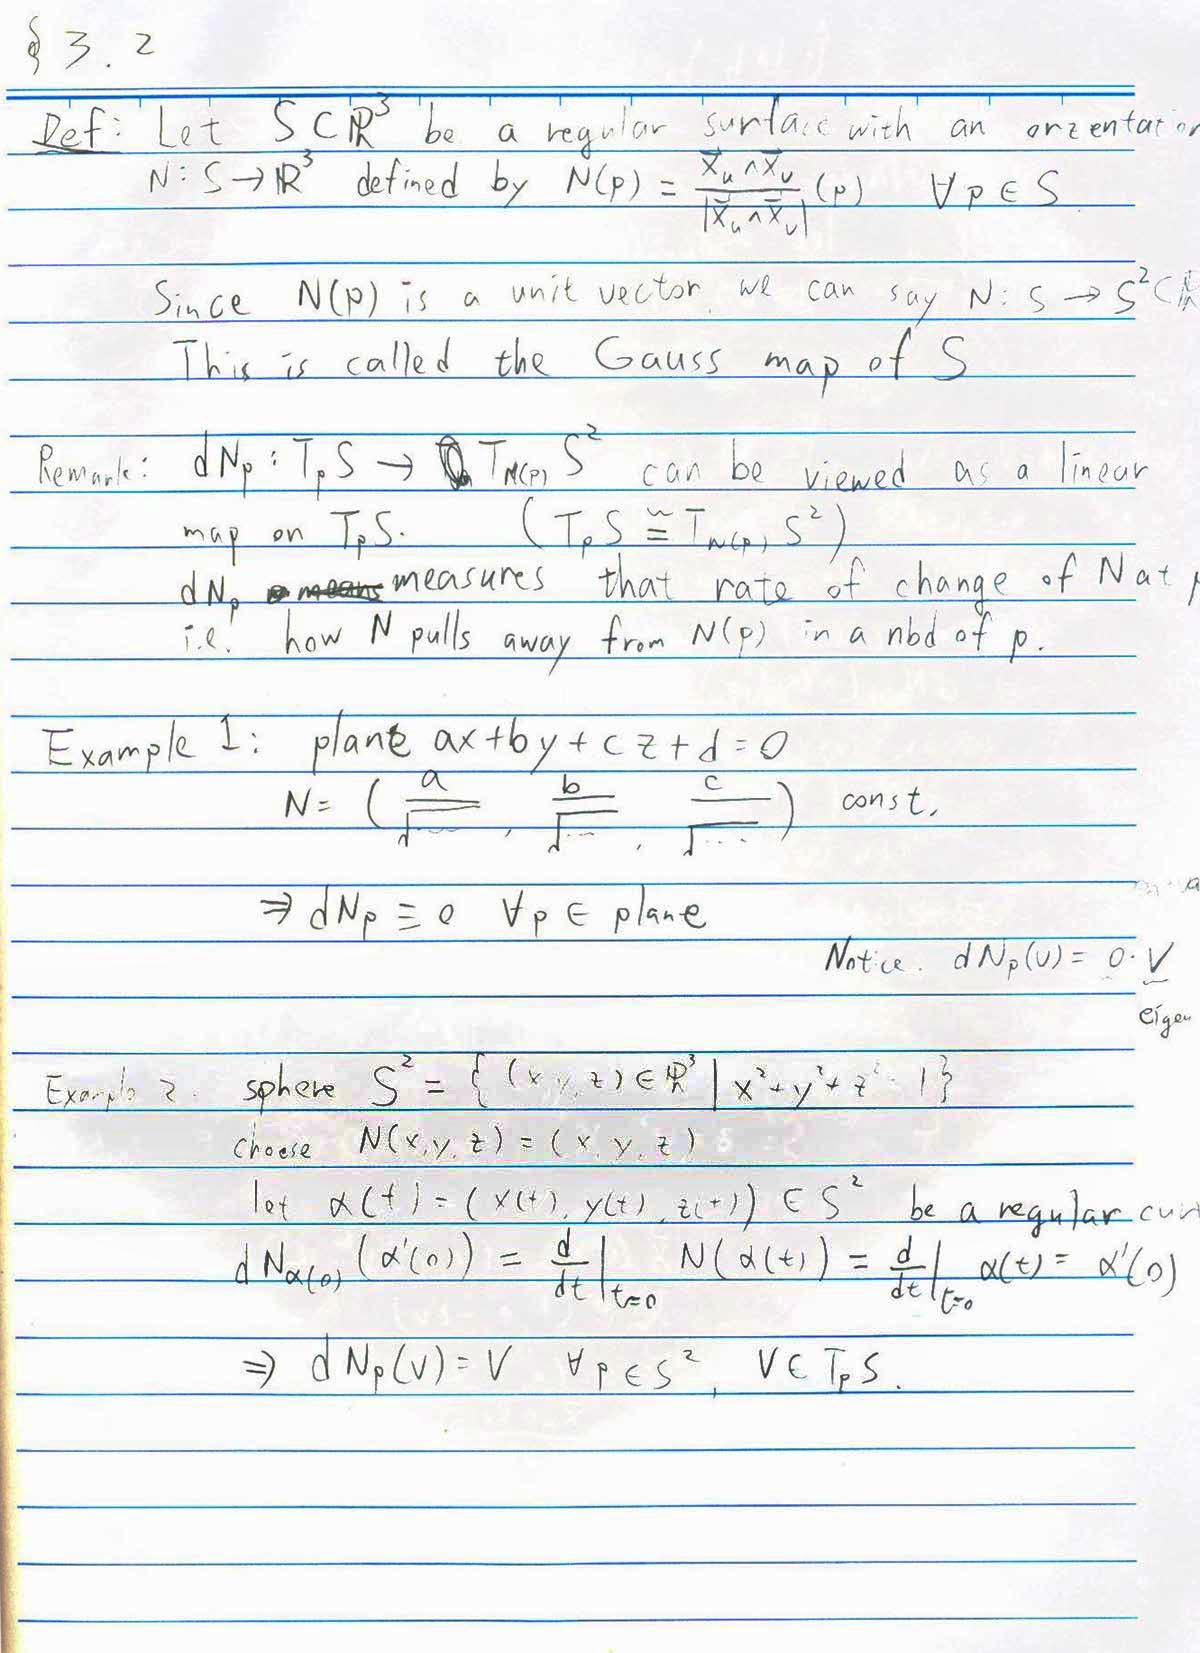 § 3.2
Def: Let S ⊂ ℝ³ be a regular surface with an orzentation
N: S → ℝ³ defined by N(p) = (x⃗ᵤ ∧ x⃗ᵥ)/|x⃗ᵤ ∧ x⃗ᵥ| (p) ∀p ∈ S
Since N(p) is a unit vector, we can say N: S → S² ⊂ ℝ
This is called the Gauss map of S
Remark: dNₚ : TₚS → T_N(p) S² can be viewed as a linear
map on TₚS. (TₚS ≅ T_N(p) S²)
dNₚ measures that rate of change of N at p
i.e. how N pulls away from N(p) in a nbd of p.
Example 1: plane ax+by+cz+d=0
N = (a/√..., b/√..., c/√...) const.
⇒ dNₚ ≡ 0 ∀p ∈ plane
Notice. dNₚ(v) = 0·V
eigen
Example 2. sphere S² = {(x,y,z) ∈ ℝ³ | x²+y²+z²=1}
choose N(x,y,z) = (x,y,z)
let α(t) = (x(t), y(t), z(t)) ∈ S² be a regular cur
dN_α(0) (α'(0)) = d/dt|t=0 N(α(t)) = d/dt|t=0 α(t) = α'(0)
⇒ dNₚ(v) = V ∀p ∈ S², V ∈ TₚS.